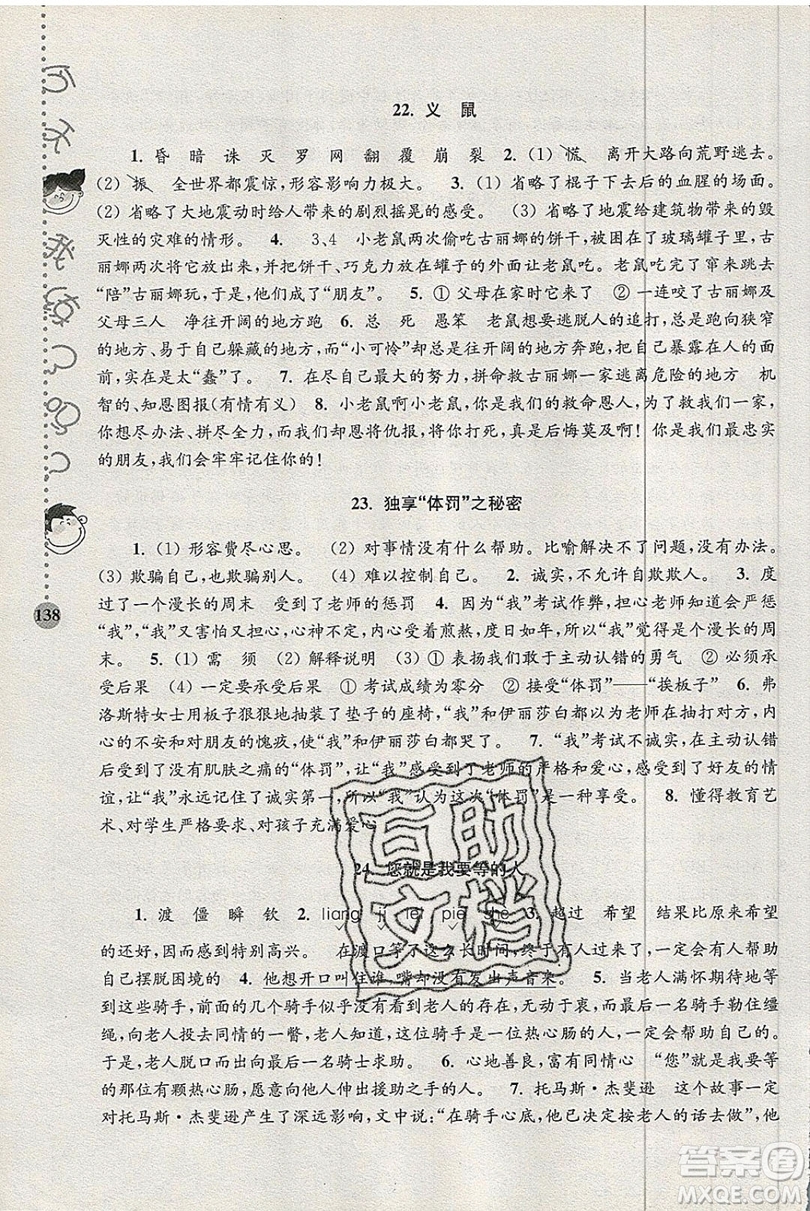 22. 义 鼠
1. 昏 暗 诛 灭 罗 网 翻 覆 崩 裂 2. (1) 慌 离开大路向荒野逃去。
(2) 振 全世界都震惊,形容影响力极大。 3. (1) 省略了棍子下去后的血腥的场面。
(2) 省略了大地震动时给人带来的剧烈摇晃的感受。 (3) 省略了地震给建筑物带来的毁
灭性的灾难的情形。 4. 3、4 小老鼠两次偷吃古丽娜的饼干,被困在了玻璃罐子里。古
丽娜两次将它放出来,并把饼干、巧克力放在罐子的外面让老鼠吃。老鼠吃完了窜来跳去
“陪”古丽娜玩,于是,他们成了“朋友”。 5. ① 父母在家时它来了 ② 一连咬了古丽娜及
父母三人 净往开阔的地方跑 6. 总 死 愚笨 老鼠想要逃脱人的追打,总会找狭窄
的地方、易于自己躲藏的地方,而“小可怜”总是往开阔的地方奔跑,把自己暴露在人的面
前,实在是太“蠢”了。 7. 尽自己最大的努力,拼命救古丽娜一家逃离危险的地方 机
智的、知恩图报(有情有义) 8. 小老鼠啊小老鼠,你是我们的救命恩人,你救了我们一家,
你想尽办法、拼尽全力,而我们却恩将仇报,将你打死,真是后悔莫及啊!你是我们最忠实
的朋友,我们会牢牢记住你的!
23. 独享“体罚”之秘密
1. (1) 形容费尽心思。 (2) 对事情没有什么帮助。比喻解决不了问题,没有办法。
(3) 欺骗自己,也欺骗别人。 (4) 难以控制自己。 2. 诚实,不允许自欺欺人。 3. 度
过了一个漫长的周末 受到了老师的惩罚 4. 因为“我”考试作弊,担心老师知道后会严惩
“我”,“我”又害怕又担心,心神不定,受到着精神的煎熬,度日如年,所以“我”觉得是个漫长的周
末。 5. (1) 需 须 (2) 解释说明 (3) ① 表扬我们敢于主动认错的勇气 ② 必须承
受后果 (4) 一定要承受后果 ① 考试成绩为零分 ② 接受“体罚”——“挨板子” 6. 弗
洛斯特女士用板子狠狠地抽装了垫子的座椅,“我”和伊丽莎白都以为老师在抽打对方,内心
的不安和对朋友的愧疚,使“我”和伊丽莎白都哭了。 7. “我”考试不诚实,在主动认错
后受到了没有肌肤之痛的“体罚”,让“我”感受到了老师的严格和爱心,感受到了朋友的情
谊,让“我”永远记住了诚实第一,所以“我”认为这次“体罚”是一种享受。 8. 懂得教育艺
术、对学生严格要求、对孩子充满爱心
24. 您就是我要等的人
1. 渡 僵 瞬 钦 2. liang ji lei pie she 3. 超过 希望 结果比原来希望
的还好,因而感到特别高兴。 在渡口等了这么长时间,终于有了希望,一定会有人帮助
自己摆脱困境的 4. 他想开口叫住谁,嘴却没发出声音来。 5. 当老人满怀期待地等
到这些骑手,前面的几个骑手似乎没有看到老人的存在,无动于衷,而最后一名骑手勒住缰
绳,向老人投去同情的一瞥,老人知道,这位骑手是一位热心肠的人,一定会给自己帮助。
于是,老人脱口而出向最后一名骑士求助。 6. 心地善良,富有同情心 “您”就是我要等
的那位有热心肠,能伸出援助之手的人。 7. 托马斯·杰斐逊 这个故事一定
对托马斯·杰斐逊产生了深远影响,文中写道,“在骑手心底,他总想着老人的话去做”,他
138
互助
文档
答案圈
MXQE.COM